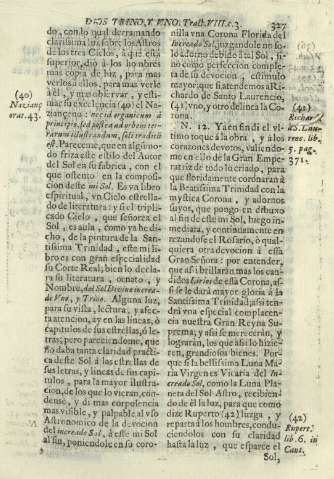 DIOS TRINO, Y VNO. Tract. VIII. c. 3. 327
do, con lo qual derramando
clarissima luz sobre los Astros
de los tres Cielos, à que està
superior, diò à los hombres
mas copia de luz, para mas
verlos à ellos, para mas verle
à èl, y mas observar, y esti-
mar su excelencia (40) el Na-
ziançeno: nec id organicum à
principio, sed postea ad orbem ter-
rarum illustrandum, sideris dedi
est. Pareceme, que en alguno-
do friza este estilo del Autor
del Sol en su fabrica, con el
que ostento en la composi-
cion deste mi Sol. Es va libro
espiritual, vn Cielo estrella-
do de literatura, y si el tripli-
cado Cielo, que señorea el
Sol, es aula, como ya he di-
cho, de la pintura de la San-
tissima Trinidad, este mi li-
bro es con gran especialidad
su Corte Real; bien lo decla-
ra su literatura, ornato, y
Nombre, del Sol Divino increa-
do Vno, y Trino. Alguna luz,
para su vista, lectura, y afec-
ta atencion, ay en las lineas, ò
capitulos de sus estrellas, ò le-
tras; pero pareciendome, que
no daba tanta claridad practi-
ca deste Sol à las estrellas de
sus letras, y lineas de sus capi-
tulos, para la mayor ilustra-
cion, de los que lo vieran, con-
densè, y di mas corpulencia
mas visible, y palpable al vso
Astronomico de la devocion
del increado Sol, à este mi Sol
al fin, poniendole en su coro-
(40)
Naziançen.
orat. 43.
nilla vna Corona Florida del
Increado Sol, juzgandole no so-
lo adorno debido à tal Sol, si-
no como perfeccion comple-
ta de su devocion, estimulo
mayor que si atendemos à Ri-
chardo de Santo Laurencio,
(41) vno, y otro delinea la Co-
rona.
N. 12. Ya en fin di el vl-
timo toque à la obra, y à los
coraçones devotos, valiendo-
me en ello de la Gran Empe-
ratriz de todo lo criado, para
que floridamente coronàran à
la Beatissima Trinidad con la
mystica Corona, y adornos
suyos, que pongo en dibuxo
al fin de este mi Sol, luego in-
mediata, y continuamente en
rezandose el Rosario, ò qual-
quiera otra devocion à esta
Gran Señora: por entender,
que assi brillaràn mas los can-
didos Lirios de esta Corona, assi
se le darà mayor gloria à la
Santissima Trinidad; assi ten-
drà vna especial complacen-
cia nuestra Gran Reyna Su-
prema; y assi se mereceràn, y
lograràn, los que assi lo hizie-
ren, grandiosos bienes. Por-
que si la bellissima Luna Ma-
ria Virgenes Vicaria del In-
creado Sol, como la Luna Pla-
neta del Sol Astro, recibien-
do de èl la luz, para que como
dize Ruperto (42) luzga, y
reparta à los hombres, condu-
ciendolos con su claridad
hasta la luz, que esparce el
Sol,
(41)
Richar.
à S. Lau-
rens. lib.
5. pag.
371.
(42)
Rupert.
lib. 6. in
Cant.